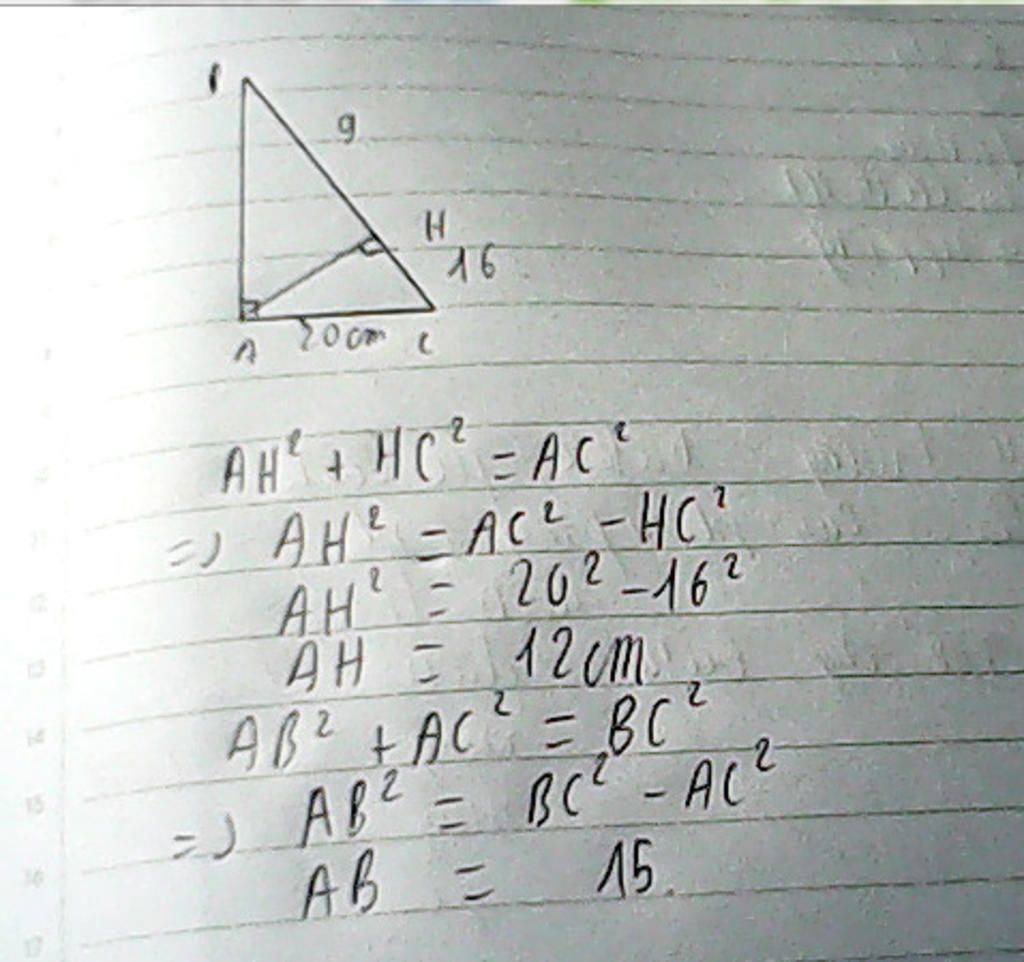 9
H
16
A 20cm C
AH² + HC² = AC²
=) AH² = AC² - HC²
AH² = 20² - 16²
AH = 12cm
AB² + AC² = BC²
=) AB² = BC² - AC²
AB = 15.